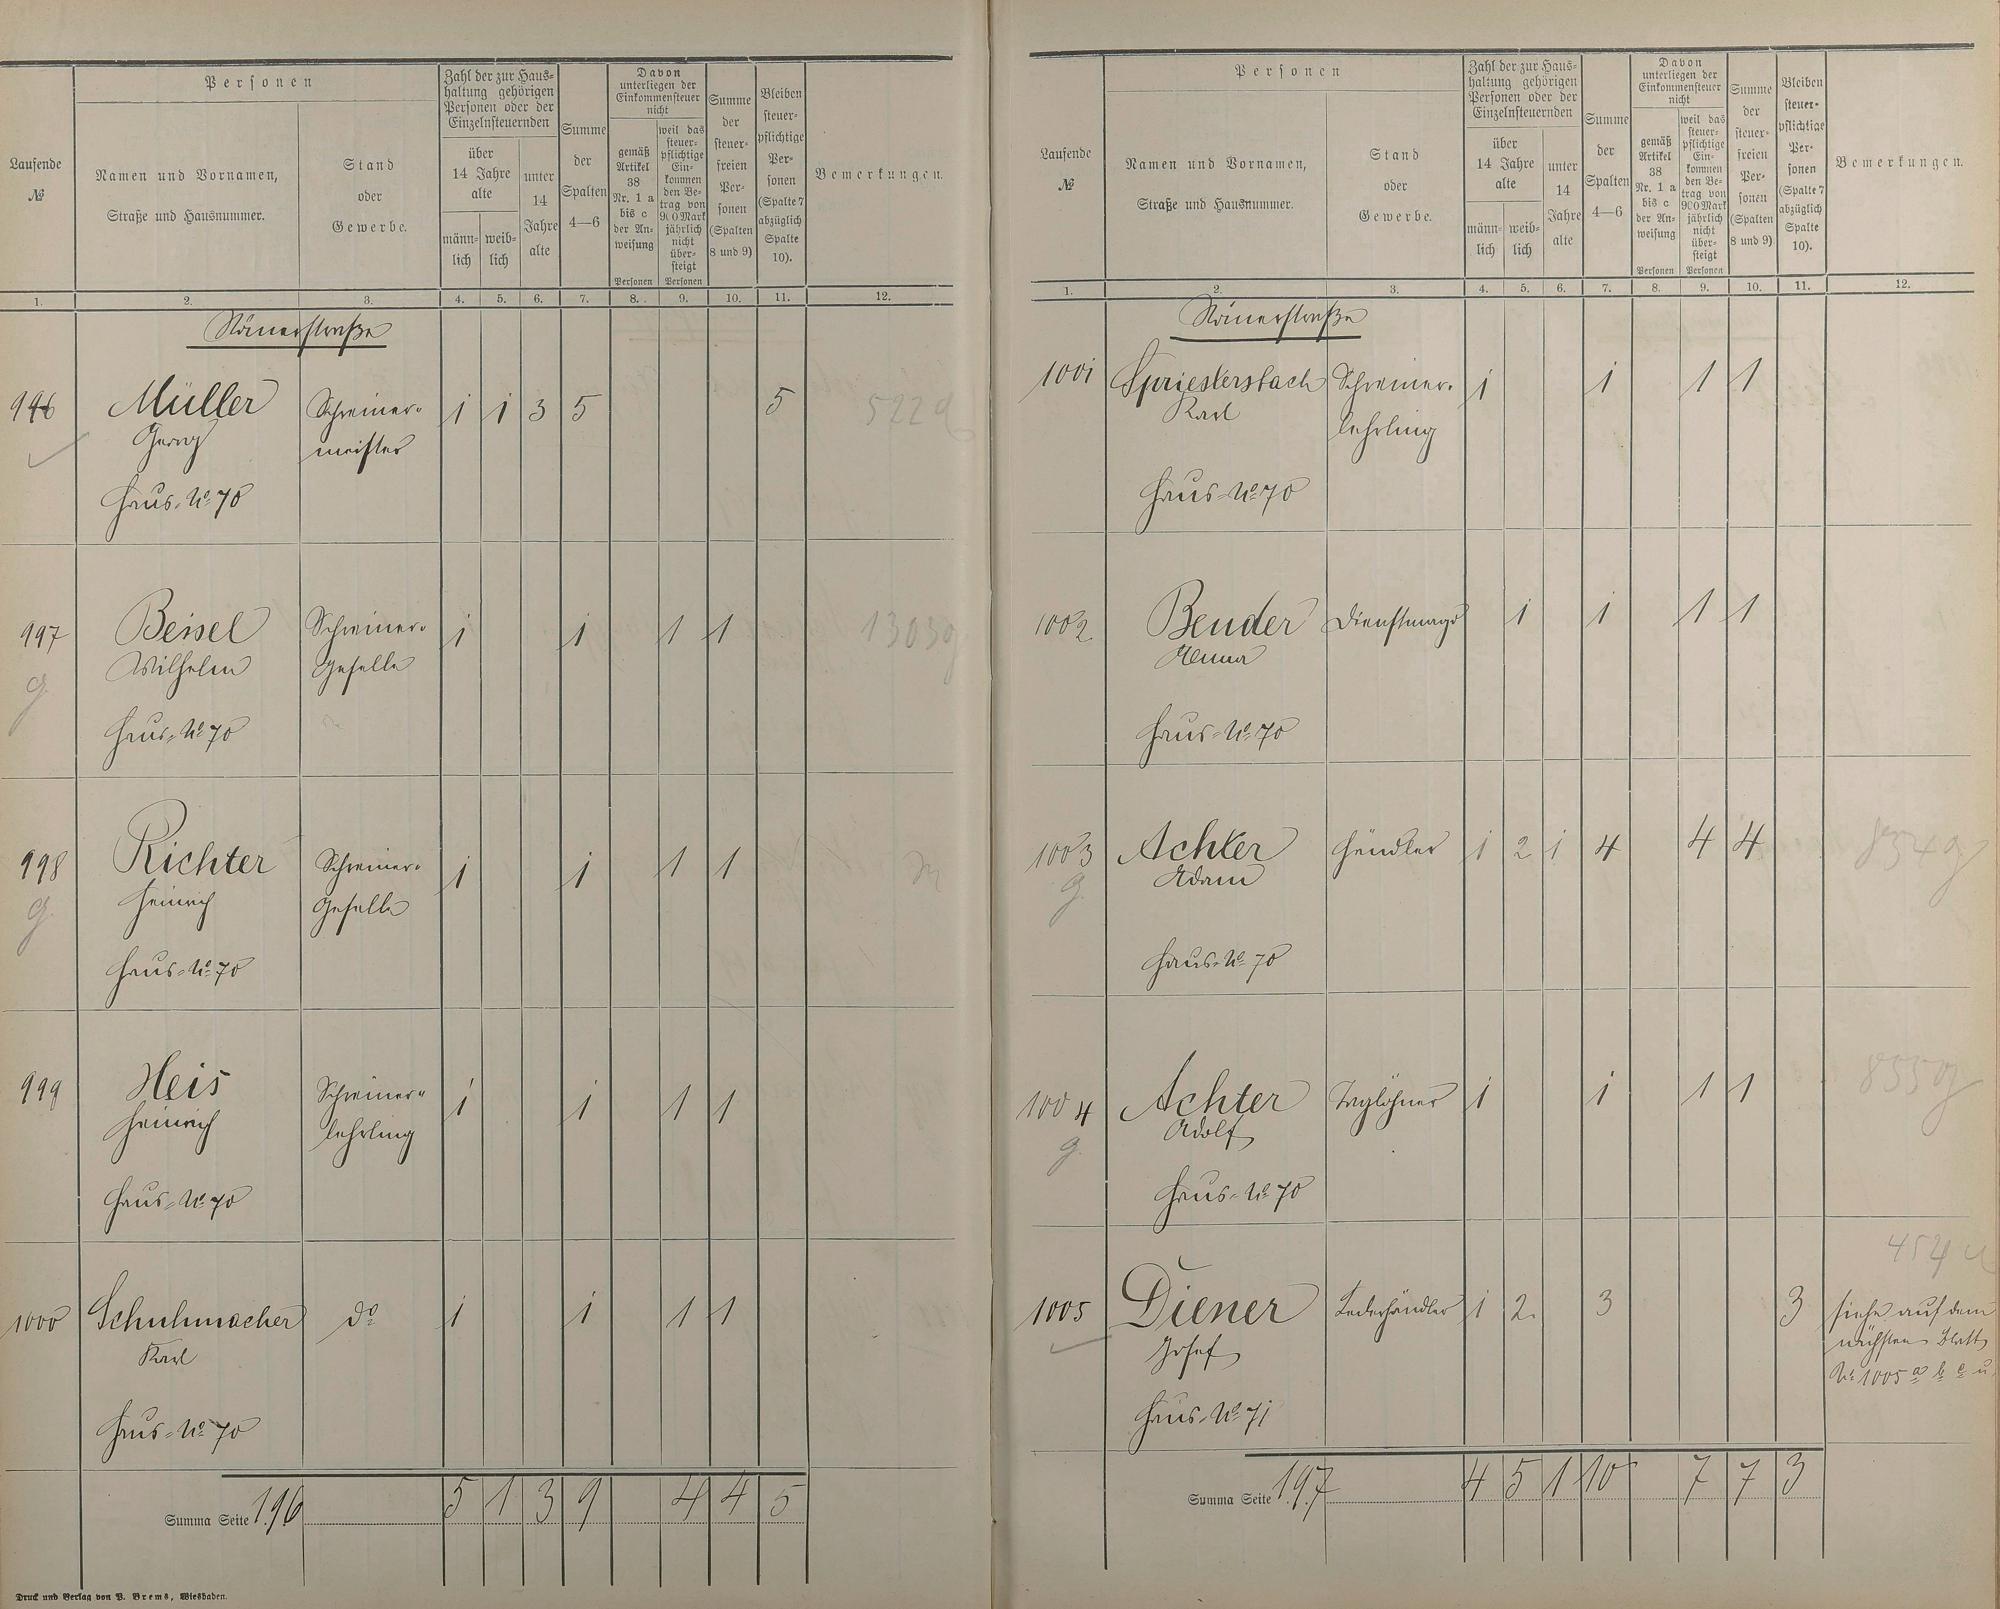 Laufende
№
Personen
Namen und Vornamen,
Straße und Hausnummer.
Stand
oder
Gewerbe.
Zahl der zur Haus-
haltung gehörigen
Personen oder der
Einzelnsteuernden
über
14 Jahre
alte
männ-
lich
weib-
lich
unter
14
Jahre
alte
Summe
der
Spalten
4—6
Davon
unterliegen der
Einkommensteuer
nicht
gemäß
Artikel
38
Nr. 1 a
bis c
der An-
weisung
Personen
weil das
steuer-
pflichtige
Ein-
kommen
den Be-
trag von
900 Mark
jährlich
nicht
über-
steigt
Personen
Summe
der
steuer-
freien
Per-
sonen
(Spalten
8 und 9)
Bleiben
steuer-
pflichtige
Per-
sonen
(Spalte 7
abzüglich
Spalte
10).
Bemerkungen.
1. 2. 3. 4. 5. 6. 7. 8. 9. 10. 11. 12.
Römerstraße
996 Müller Schreiner- 1 1 3 5 5 522
Georg meister
Haus-No 70
997 Beisel Schreiner- 1 1 1 1 1303 g
Wilhelm Geselle
g
Haus-No 70
998 Richter Schreiner- 1 1 1 1
Heinrich Geselle
g
Haus-No 70
999 Heis Schreiner- 1 1 1 1
Heinrich lehrling
Haus-No 70
1000 Schuhmacher do 1 1 1 1
Karl
Haus-No 70
Summa Seite 196 5 1 3 9 4 4 5
Druck und Verlag von P. Brems, Wiesbaden.
Laufende
№
Personen
Namen und Vornamen,
Straße und Hausnummer.
Stand
oder
Gewerbe.
Zahl der zur Haus-
haltung gehörigen
Personen oder der
Einzelnsteuernden
über
14 Jahre
alte
männ-
lich
weib-
lich
unter
14
Jahre
alte
Summe
der
Spalten
4—6
Davon
unterliegen der
Einkommensteuer
nicht
gemäß
Artikel
38
Nr. 1 a
bis c
der An-
weisung
Personen
weil das
steuer-
pflichtige
Ein-
kommen
den Be-
trag von
900 Mark
jährlich
nicht
über-
steigt
Personen
Summe
der
steuer-
freien
Per-
sonen
(Spalten
8 und 9)
Bleiben
steuer-
pflichtige
Per-
sonen
(Spalte 7
abzüglich
Spalte
10).
Bemerkungen.
1. 2. 3. 4. 5. 6. 7. 8. 9. 10. 11. 12.
Römerstraße
1001 Spriestersbach Schreiner- 1 1 1 1
Karl lehrling
Haus-No 70
1002 Bender Dienstmagd 1 1 1 1
Anna
Haus-No 70
1003 Achter Händler 1 2 1 4 4 4 834 g
g Adam
Haus-No 70
1004 Achter Taglöhner 1 1 1 1 835 g
Adolf
g
Haus-No 70
454
1005 Diener Lederhändler 1 2 3 3 siehe auf dem
Josef nächsten Blatt
No 1005 a b c u.
Haus-No 71
Summa Seite 197 4 5 1 10 7 7 3